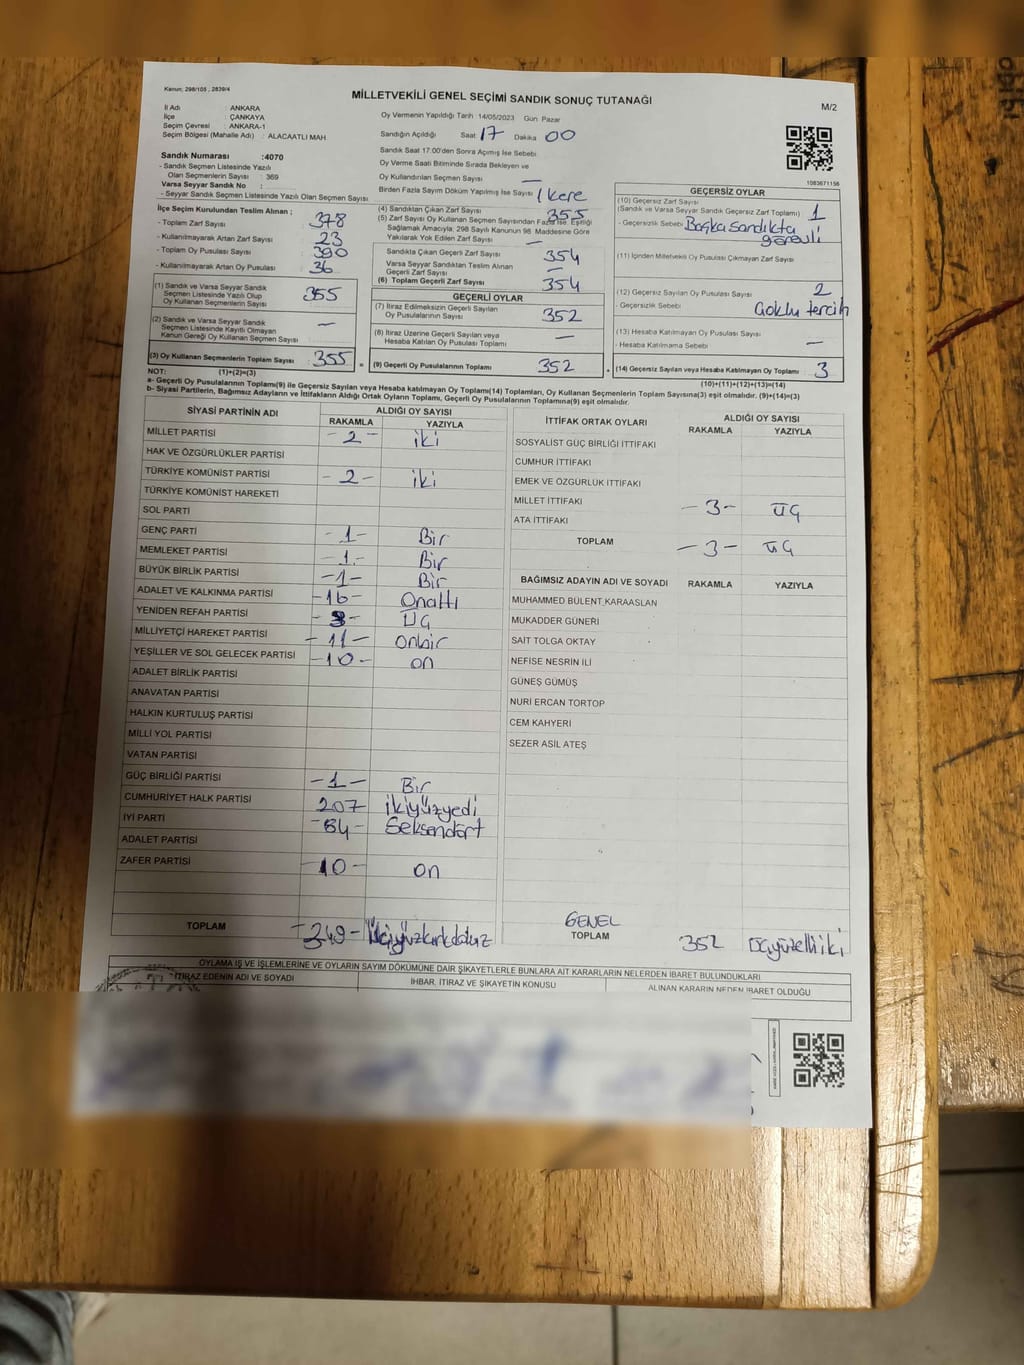 Kanun; 298/105 , 2839/4
MİLLETVEKİLİ GENEL SEÇİMİ SANDIK SONUÇ TUTANAĞI
M/2
İl Adı : ANKARA
İlçe : ÇANKAYA
Seçim Çevresi : ANKARA-1
Seçim Bölgesi (Mahalle Adı) : ALACAATLI MAH
Oy Vermenin Yapıldığı Tarih 14/05/2023 Gün Pazar
Sandığın Açıldığı Saat 17 Dakika 00
Sandık Saat 17:00'den Sonra Açılmış İse Sebebi
Oy Verme Saati Bitiminde Sırada Bekleyen ve
Oy Kullandırılan Seçmen Sayısı —
Birden Fazla Sayım Döküm Yapılmış İse Sayısı 1 kere
Sandık Numarası :4070
- Sandık Seçmen Listesinde Yazılı
Olan Seçmenlerin Sayısı : 369
Varsa Seyyar Sandık No :
- Seyyar Sandık Seçmen Listesinde Yazılı Olan Seçmen Sayısı
1083671156
İlçe Seçim Kurulundan Teslim Alınan ;
- Toplam Zarf Sayısı 378
- Kullanılmayarak Artan Zarf Sayısı 23
- Toplam Oy Pusulası Sayısı 390
- Kullanılmayarak Artan Oy Pusulası 36
(1) Sandık ve Varsa Seyyar Sandık
Seçmen Listesinde Yazılı Olup
Oy Kullanan Seçmenlerin Sayısı 355
(2) Sandık ve Varsa Seyyar Sandık
Seçmen Listesinde Kayıtlı Olmayan
Kanun Gereği Oy Kullanan Seçmen Sayısı —
(3) Oy Kullanan Seçmenlerin Toplam Sayısı 355 =
(4) Sandıktan Çıkan Zarf Sayısı 355
(5) Zarf Sayısı Oy Kullanan Seçmen Sayısından Fazla İse, Eşitliği
Sağlamak Amacıyla, 298 Sayılı Kanunun 98. Maddesine Göre
Yakılarak Yok Edilen Zarf Sayısı —
Sandıkta Çıkan Geçerli Zarf Sayısı 354
Varsa Seyyar Sandıktan Teslim Alınan
Geçerli Zarf Sayısı —
(6) Toplam Geçerli Zarf Sayısı 354
GEÇERLİ OYLAR
(7) İtiraz Edilmeksizin Geçerli Sayılan
Oy Pusulalarının Sayısı 352
(8) İtiraz Üzerine Geçerli Sayılan veya
Hesaba Katılan Oy Pusulaları Toplamı —
(9) Geçerli Oy Pusulalarının Toplamı 352 +
GEÇERSİZ OYLAR
(10) Geçersiz Zarf Sayısı
(Sandık ve Varsa Seyyar Sandık Geçersiz Zarf Toplamı) 1
- Geçersizlik Sebebi Başka sandıkta
görevli
(11) İçinden Milletvekili Oy Pusulası Çıkmayan Zarf Sayısı
(12) Geçersiz Sayılan Oy Pusulası Sayısı 2
- Geçersizlik Sebebi Çoklu tercih
(13) Hesaba Katılmayan Oy Pusulası Sayısı
- Hesaba Katılmama Sebebi —
(14) Geçersiz Sayılan veya Hesaba Katılmayan Oy Toplamı 3
NOT: (1)+(2)=(3)
(10)+(11)+(12)+(13)=(14)
a- Geçerli Oy Pusulalarının Toplamı(9) ile Geçersiz Sayılan veya Hesaba katılmayan Oy Toplam(14) Toplamları, Oy Kullanan Seçmenlerin Toplam Sayısına(3) eşit olmalıdır. (9)+(14)=(3)
b- Siyasi Partilerin, Bağımsız Adayların ve İttifakların Aldığı Ortak Oyların Toplamı, Geçerli Oy Pusulalarının Toplamına(9) eşit olmalıdır.
SİYASİ PARTİNİN ADI ALDIĞI OY SAYISI
RAKAMLA YAZIYLA
MİLLET PARTİSİ -2- iki
HAK VE ÖZGÜRLÜKLER PARTİSİ
TÜRKİYE KOMÜNİST PARTİSİ -2- iki
TÜRKİYE KOMÜNİST HAREKETİ
SOL PARTİ
GENÇ PARTİ -1- Bir
MEMLEKET PARTİSİ -1- Bir
BÜYÜK BİRLİK PARTİSİ -1- Bir
ADALET VE KALKINMA PARTİSİ -16- Onaltı
YENİDEN REFAH PARTİSİ -3- ÜÇ
MİLLİYETÇİ HAREKET PARTİSİ -11- onbir
YEŞİLLER VE SOL GELECEK PARTİSİ -10- on
ADALET BİRLİK PARTİSİ
ANAVATAN PARTİSİ
HALKIN KURTULUŞ PARTİSİ
MİLLİ YOL PARTİSİ
VATAN PARTİSİ
GÜÇ BİRLİĞİ PARTİSİ -1- Bir
CUMHURİYET HALK PARTİSİ 207 ikiyüzyedi
İYİ PARTİ -84- Seksendört
ADALET PARTİSİ
ZAFER PARTİSİ -10- on
TOPLAM -349-
İTTİFAK ORTAK OYLARI ALDIĞI OY SAYISI
RAKAMLA YAZIYLA
SOSYALİST GÜÇ BİRLİĞİ İTTİFAKI
CUMHUR İTTİFAKI
EMEK VE ÖZGÜRLÜK İTTİFAKI
MİLLET İTTİFAKI -3- ÜÇ
ATA İTTİFAKI
TOPLAM -3- ÜÇ
BAĞIMSIZ ADAYIN ADI VE SOYADI RAKAMLA YAZIYLA
MUHAMMED BÜLENT KARAASLAN
MUKADDER GÜNERİ
SAİT TOLGA OKTAY
NEFİSE NESRİN İLİ
GÜNEŞ GÜMÜŞ
NURİ ERCAN TORTOP
CEM KAHYERİ
SEZER ASİL ATEŞ
GENEL
TOPLAM 352 üçyüzelliiki
OYLAMA İŞ VE İŞLEMLERİNE VE OYLARIN SAYIM DÖKÜMÜNE DAİR ŞİKAYETLERLE BUNLARA AİT KARARLARIN NELERDEN İBARET BULUNDUKLARI
İTİRAZ EDENİN ADI VE SOYADI İHBAR, İTİRAZ VE ŞİKAYETİN KONUSU ALINAN KARARIN NEDEN İBARET OLDUĞU